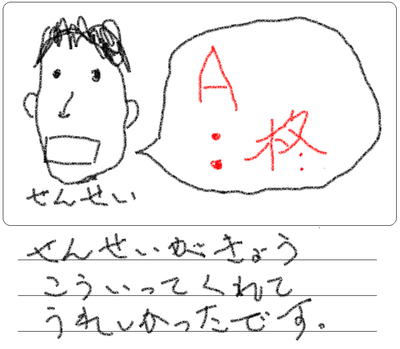 合格
せんせい
せんせいがきょう
こういってくれて
うれしかったです。